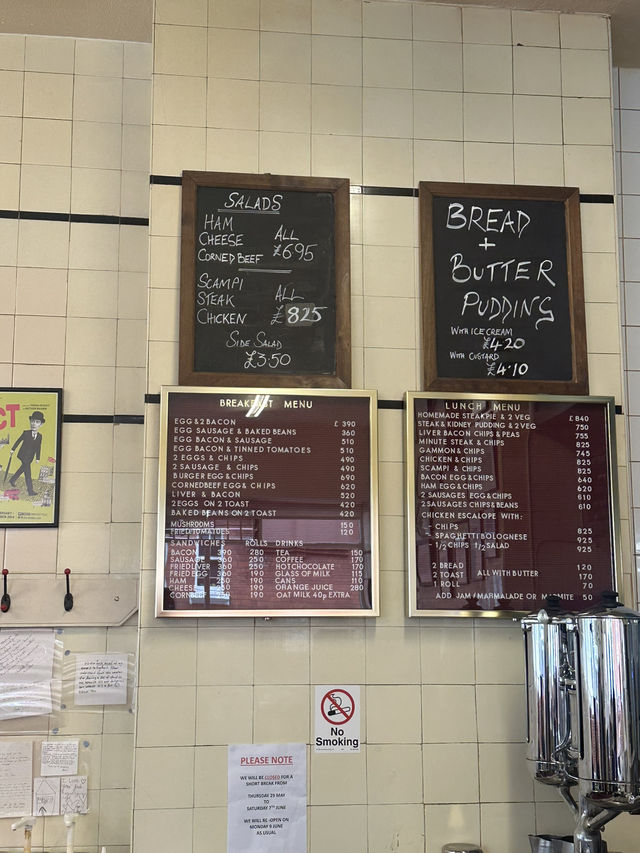 SALADS
HAM
CHEESE
CORNED BEEF
ALL
£695
SCAMPI
STEAK
CHICKEN
ALL
£825
SIDE SALAD
£3.50
BREAD
+
BUTTER
PUDDING
WITH ICE CREAM
£4.20
WITH CUSTARD
£4.10
BREAKFAST MENU
EGG & 2 BACON £ 390
EGG SAUSAGE & BAKED BEANS 360
EGG BACON & SAUSAGE 510
EGG BACON & TINNED TOMATOES 510
2 EGGS & CHIPS 490
2 SAUSAGE & CHIPS 490
BURGER EGG & CHIPS 690
CORNED BEEF EGG & CHIPS 620
LIVER & BACON 520
2 EGGS ON 2 TOAST 420
BAKED BEANS ON 2 TOAST 420
MUSHROOMS 150
FRIED TOMATOES 120
SANDWICHES ROLLS DRINKS
BACON 390 280 TEA 150
SAUSAGE 360 250 COFFEE 170
FRIED LIVER 360 250 HOT CHOCOLATE 170
FRIED EGG 360 190 GLASS OF MILK 115
HAM 250 190 CANS 110
CHEESE 250 190 ORANGE JUICE 280
CORNBEEF 250 190 OAT MILK 40p EXTRA
LUNCH MENU
HOMEMADE STEAK PIE & 2 VEG £ 840
STEAK & KIDNEY PUDDING & 2 VEG 750
LIVER BACON CHIPS & PEAS 755
MINUTE STEAK & CHIPS 825
GAMMON & CHIPS 745
CHICKEN & CHIPS 825
SCAMPI & CHIPS 825
BACON EGG & CHIPS 640
HAM EGG & CHIPS 620
2 SAUSAGES EGG & CHIPS 610
2 SAUSAGES CHIPS & BEANS 610
CHICKEN ESCALOPE WITH:
- CHIPS 825
- SPAGHETTI BOLOGNESE 925
- 1/2 CHIPS 1/2 SALAD 925
2 BREAD 120
2 TOAST ALL WITH BUTTER 170
1 ROLL 70
ADD JAM / MARMALADE OR MARMITE 50
No
Smoking
PLEASE NOTE
WE WILL BE CLOSED FOR A
SHORT BREAK FROM
THURSDAY 29 MAY
TO
SATURDAY 7TH JUNE
WE WILL RE-OPEN ON
MONDAY 9 JUNE
AS USUAL
CT